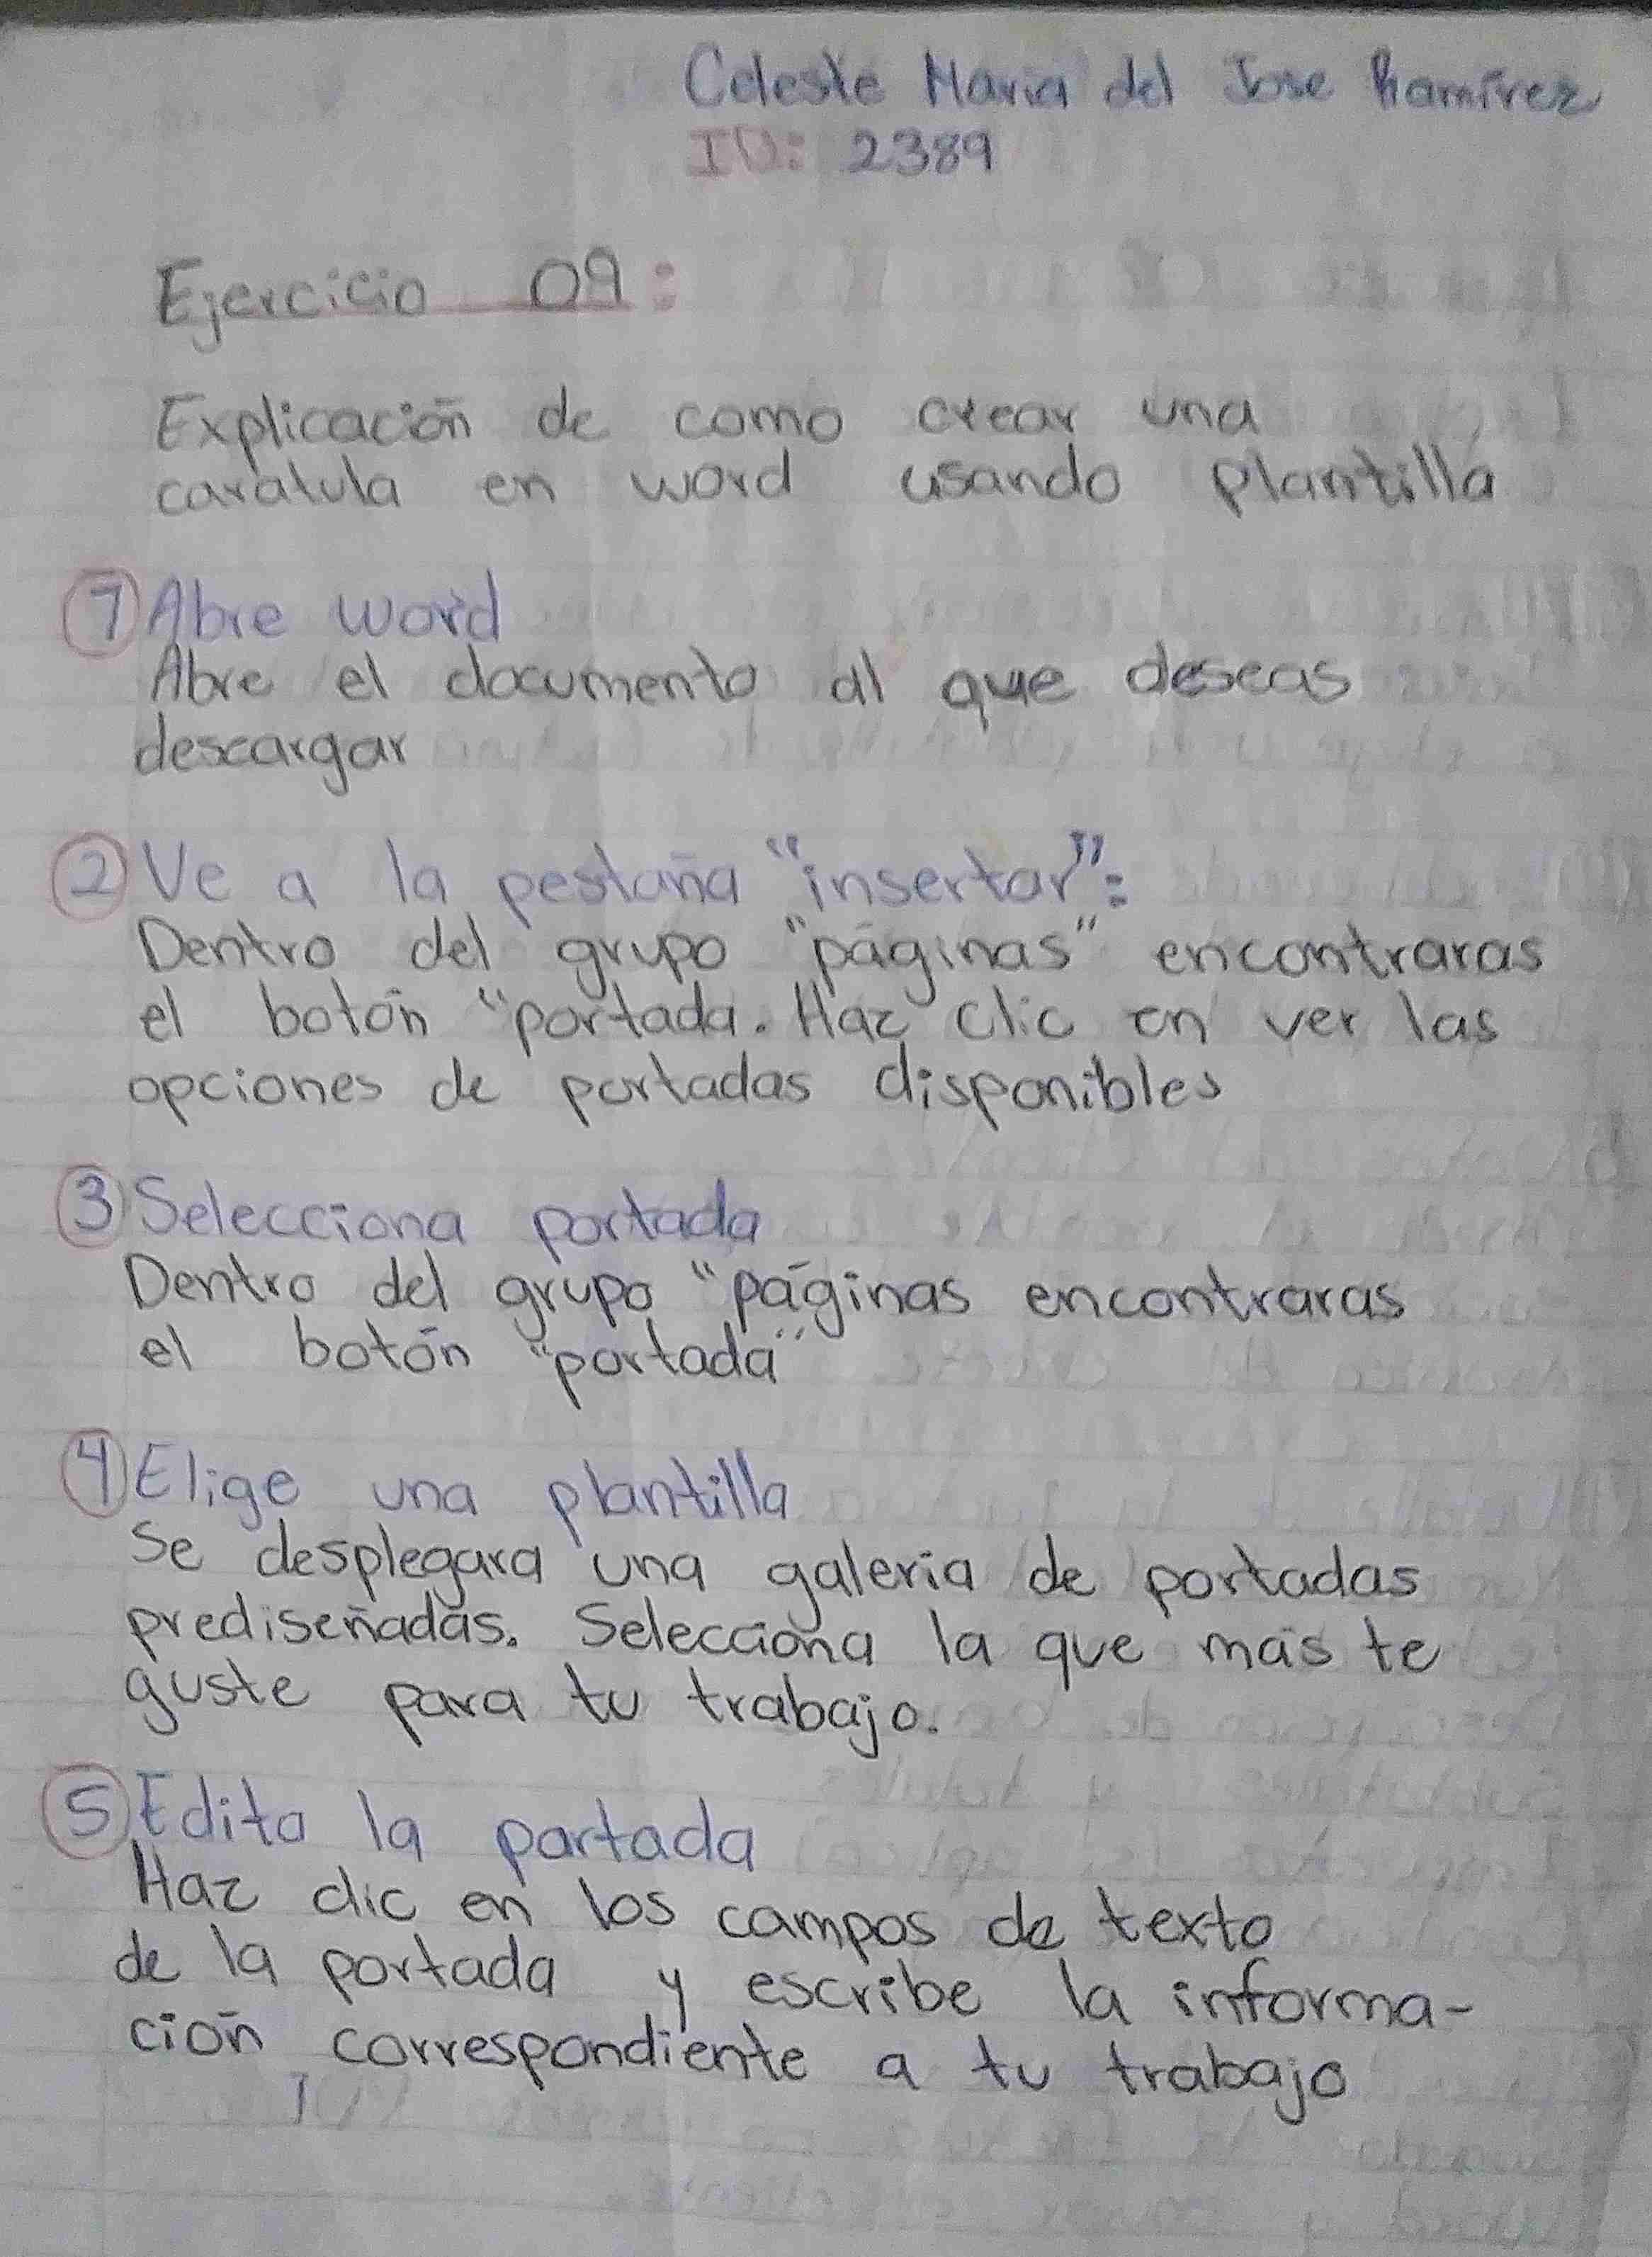 Celeste Maria del Jose Ramírez
ID: 2389
Ejercicio 09:
Explicación de como crear una
caratula en word usando plantilla
1 Abre word
Abre el documento al que deseas
descargar
2 Ve a la pestaña "insertar":
Dentro del grupo "páginas" encontraras
el botón "portada. Haz clic en ver las
opciones de portadas disponibles
3 Selecciona portada
Dentro del grupo "páginas encontraras
el botón "portada"
4 Elige una plantilla
Se desplegara una galeria de portadas
prediseñadas. Selecciona la que más te
guste para tu trabajo.
5 Edita la portada
Haz clic en los campos de texto
de la portada y escribe la informa-
ción correspondiente a tu trabajo